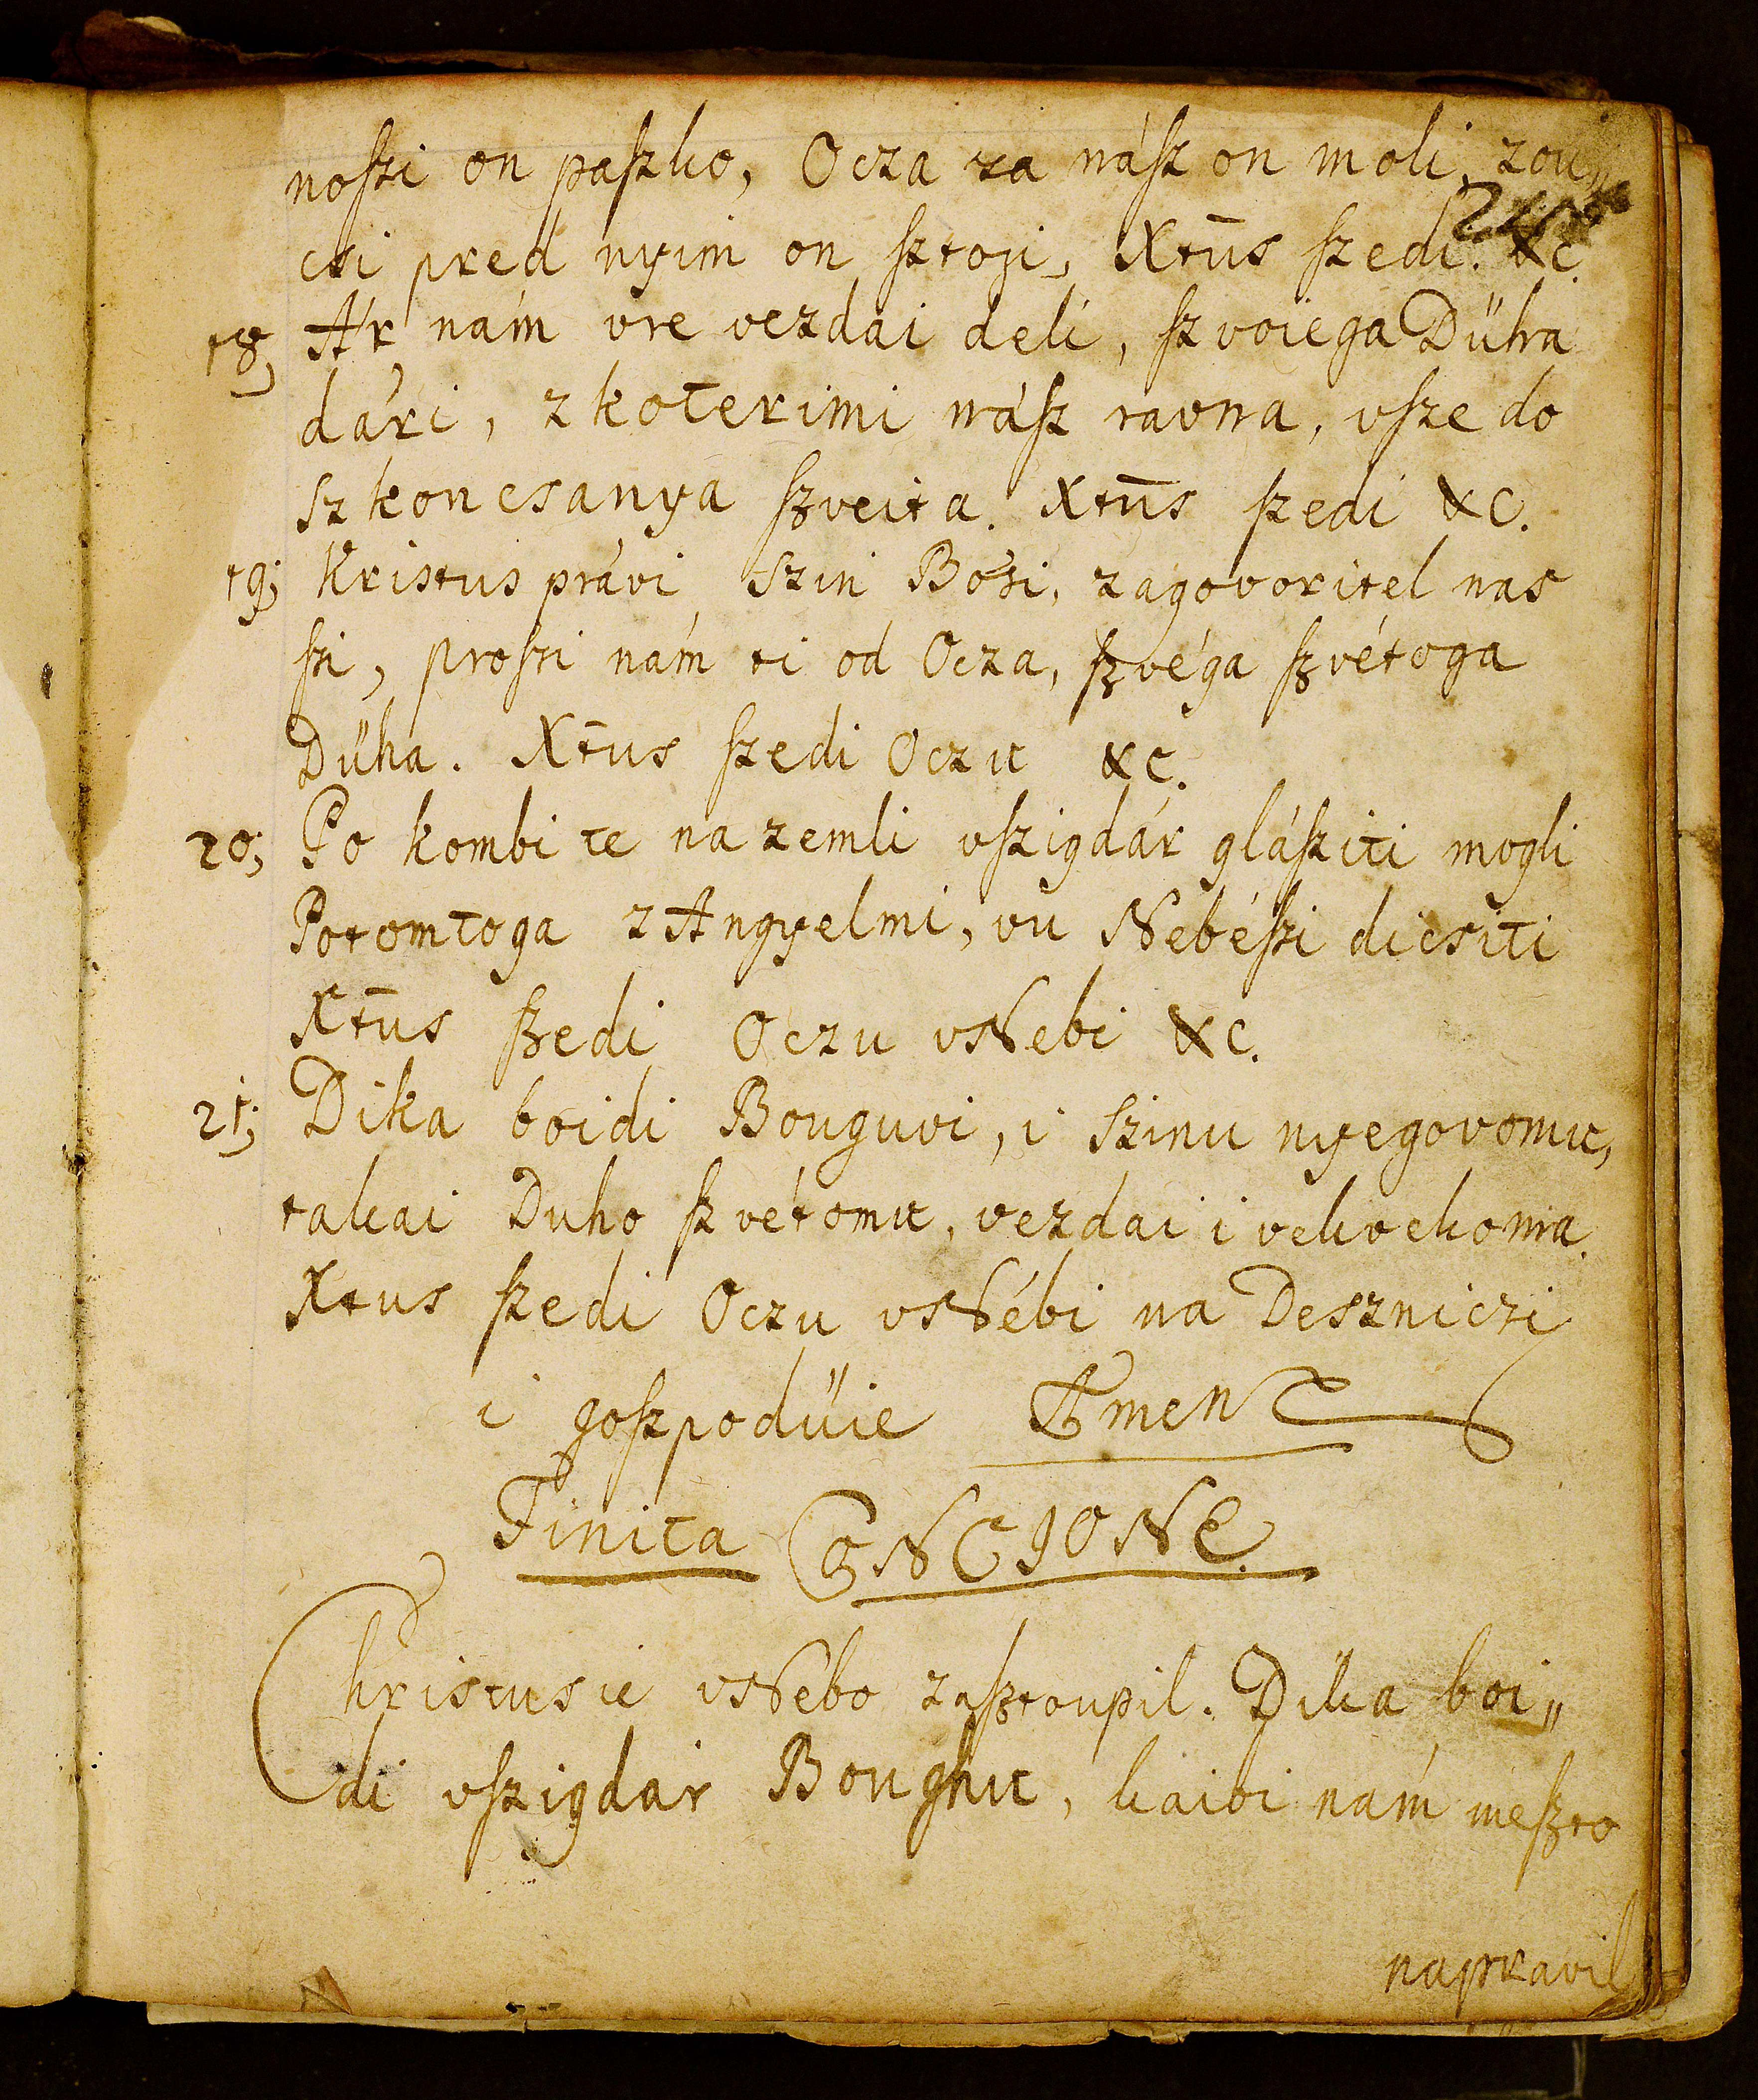 noſzi on paſzko, Ocza za náſz on moli, zou„
csi pred nyim on ſztoji, Xtūs ſzedi. &c.
18; Ar nám vre vezdai deli, ſzvoiega Dűha
dári, z koterimi náſz ravna, vſze do
szkoncsanya ſzveita. Xtūs ſzedi &c.
19; Kristus právi Szin Bosi, zagovoritel nas
ſsi, proſzi nám ti od Ocza, ſzvéga ſzvétoga
Dűha. Xtūs ſzedi Oczu &c.
20; Po kombi te na zemli vſzigdár gláſziti mogli
Potomtoga z Angyelmi, vu Nebéſzi dicsiti
Xtūs ſzedi Oczu vNebi &c.
21; Dika boidi Bouguvi, i Szinu nyegovomu,
takai Duho ſzvétomu, vezdai i vekvekoma.
Xtus ſzedi Oczu vNébi na Deszniczi
i goſzpodűie Amen
Finita CONCIONE.
Christus ie vNébo zaſztoupil. Dika boi„
di vſzigdar Boughu, kaibi nám meſzto
napravil